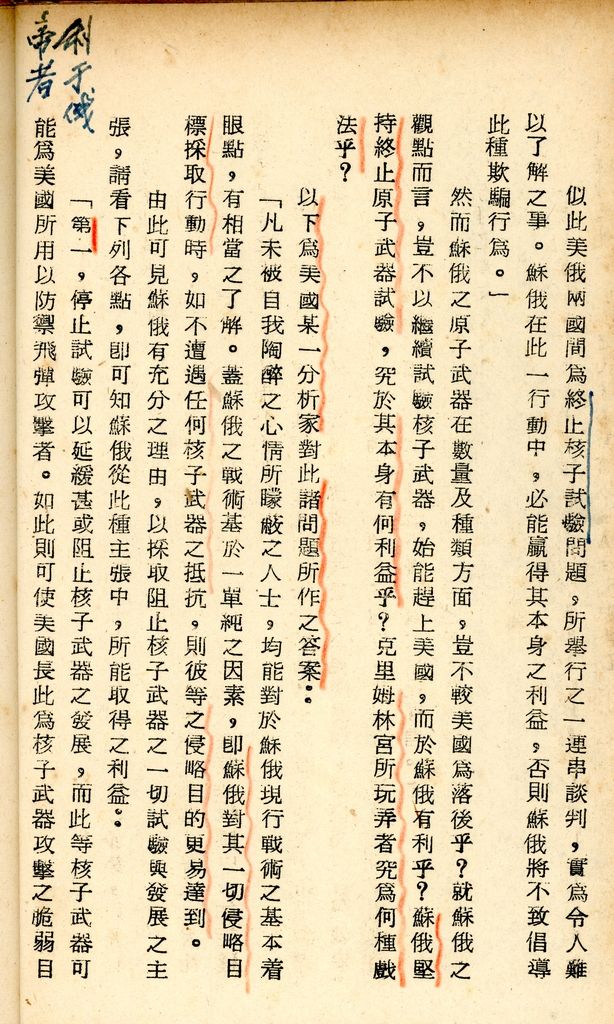 似此美俄兩國間為終止核子試驗問題，所舉行之一連串談判，實為令人難
以了解之事。蘇俄在此一行動中，必能贏得其本身之利益，否則蘇俄將不致倡導
此種欺騙行為。」
然而蘇俄之原子武器在數量及種類方面，豈不較美國為落後乎？就蘇俄之
觀點而言，豈不以繼續試驗核子武器，始能趕上美國，而於蘇俄有利乎？蘇俄堅
持終止原子武器試驗，究於其本身有何利益乎？克里姆林宮所玩弄者究為何種戲
法乎？
以下為美國某一分析家對此諸問題所作之答案：
「凡未被自我陶醉之心情所矇蔽之人士，均能對於蘇俄現行戰術之基本着
眼點，有相當之了解。蓋蘇俄之戰術基於一單純之因素，卽蘇俄對其一切侵略目
標採取行動時，如不遭遇任何核子武器之抵抗，則彼等之侵略目的更易達到。
由此可見蘇俄有充分之理由，以採取阻止核子武器之一切試驗與發展之主
張，請看下列各點，卽可知蘇俄從此種主張中，所能取得之利益：
「第一，停止試驗可以延緩甚或阻止核子武器之發展，而此等核子武器可
能為美國所用以防禦飛彈攻擊者。如此則可使美國長此為核子武器攻擊之脆弱目
利于俄
帝者